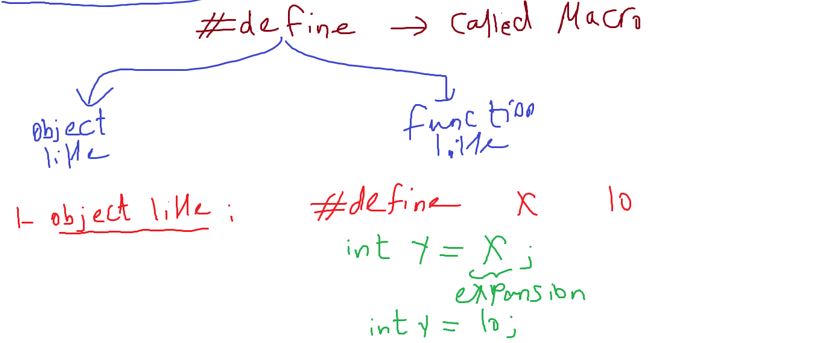 #define → called Macro
object
like
function
like
1- object like : #define X 10
int Y = X ;
expansion
int Y = 10;